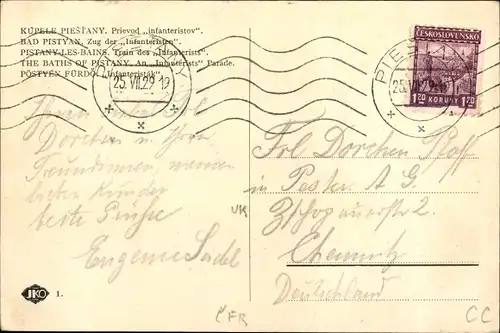 KÚPELE PIEŠŤANY. Prievod „infanteristov".
BAD PISTYAN. Zug der „Infanteristen".
PISTANY-LES-BAINS. Train des „Infanterists".
THE BATHS OF PISTANY. An „Infantérists" Parade.
PÖSTYÉN FÜRDŐ. „Infanteristák"
25.VII.29
ČESKOSLOVENSKO
1·20 KORUNY 1·20
PIEŠ
25.VII.29
Frl.
Dorchen u. Ihren
Freundinnen, meinen
lieben Kindern
beste Grüße
Eugenie
Frl Dorchen
in Pester A. G.
Zschopauerstr 2
Chemnitz
Deutschland
VK
JKO 1.
ČFR
CC